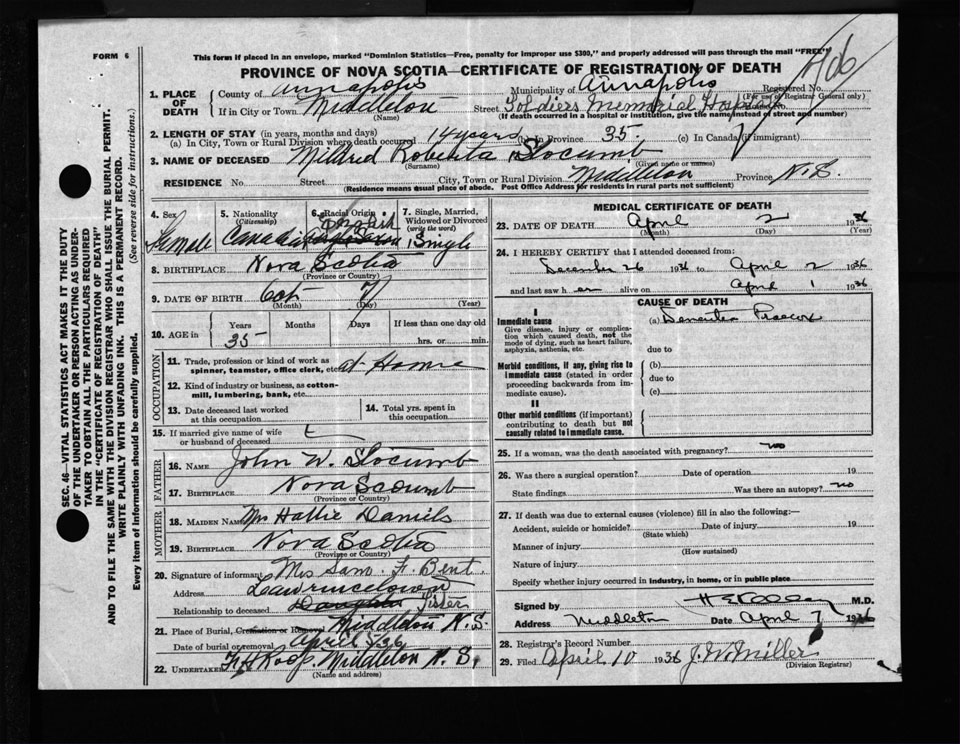 406
FORM 6
This form if placed in an envelope, marked "Dominion Statistics—Free, penalty for improper use $300," and properly addressed will pass through the mail "FREE"
PROVINCE OF NOVA SCOTIA—CERTIFICATE OF REGISTRATION OF DEATH
1. PLACE OF DEATH County of Annapolis Municipality of Annapolis Registered No.
(For use of Registrar General only)
If in City or Town Middleton (Name) Street Soldiers Memorial Hospital
(If death occurred in a hospital or institution, give the name instead of street and number)
2. LENGTH OF STAY (in years, months and days)
(a) In City, Town or Rural Division where death occurred 14 years (b) In Province 35. (c) In Canada (if immigrant)
3. NAME OF DECEASED Mildred Roberta Slocumb
(Surname) (Given name or names)
RESIDENCE No. Street City, Town or Rural Division Middleton Province N.S.
(Residence means usual place of abode. Post Office Address for residents in rural parts not sufficient)
4. Sex Female
5. Nationality (Citizenship) Canadian
6. Racial Origin English
7. Single, Married, Widowed or Divorced (write the word) Single
8. BIRTHPLACE Nova Scotia
(Province or Country)
9. DATE OF BIRTH Oct 7
(Month) (Day) (Year)
10. AGE in Years Months Days If less than one day old
35 hrs. or min.
OCCUPATION
11. Trade, profession or kind of work as spinner, teamster, office clerk, etc. at Home
12. Kind of industry or business, as cotton-mill, lumbering, bank, etc.
13. Date deceased last worked at this occupation
14. Total yrs. spent in this occupation
15. If married give name of wife or husband of deceased
FATHER
16. NAME John W. Slocumb
17. BIRTHPLACE Nova Scoumb
(Province or Country)
MOTHER
18. MAIDEN NAME Mrs Hattie Daniels
19. BIRTHPLACE Nova Scotia
(Province or Country)
20. Signature of informant Mrs Sam. F. Bent.
Address Lawrencetown
Relationship to deceased Daughter Sister
21. Place of Burial, Cremation or Removal Middleton N.S.
Date of burial or removal April 5 36
22. Undertaker Middleton N.S.
(Name and address)
MEDICAL CERTIFICATE OF DEATH
23. DATE OF DEATH April 2 1936
(Month) (Day) (Year)
24. I HEREBY CERTIFY that I attended deceased from:
December 26 1936 to April 2 1936
and last saw her alive on April 1 1936
CAUSE OF DEATH
I
Immediate cause
Give disease, injury or complication which caused death, not the mode of dying, such as heart failure, asphyxia, asthenia, etc.
(a) Dementia Praecox
due to
Morbid conditions, if any, giving rise to immediate cause (stated in order proceeding backwards from immediate cause)
(b)
due to
(c)
II
Other morbid conditions (if important) contributing to death but not causally related to immediate cause.
25. If a woman, was the death associated with pregnancy? no
26. Was there a surgical operation? Date of operation 19
State findings Was there an autopsy? no
27. If death was due to external causes (violence) fill in also the following:—
Accident, suicide or homicide? Date of injury 19
(State which)
Manner of injury
(How sustained)
Nature of injury
Specify whether injury occurred in industry, in home, or in public place
Signed by M.D.
Address Middleton Date April 7 1936
28. Registrar's Record Number
29. Filed April 10 1936 J. W. Miller
(Division Registrar)
SEC. 46—VITAL STATISTICS ACT MAKES IT THE DUTY
OF THE UNDERTAKER OR PERSON ACTING AS UNDERTAKER
TO OBTAIN ALL THE PARTICULARS REQUIRED
IN THE "CERTIFICATE OF REGISTRATION OF DEATH"
AND TO FILE THE SAME WITH THE DIVISION REGISTRAR WHO SHALL ISSUE THE BURIAL PERMIT.
WRITE PLAINLY WITH UNFADING INK. THIS IS A PERMANENT RECORD.
Every item of information should be carefully supplied. (See reverse side for instructions.)